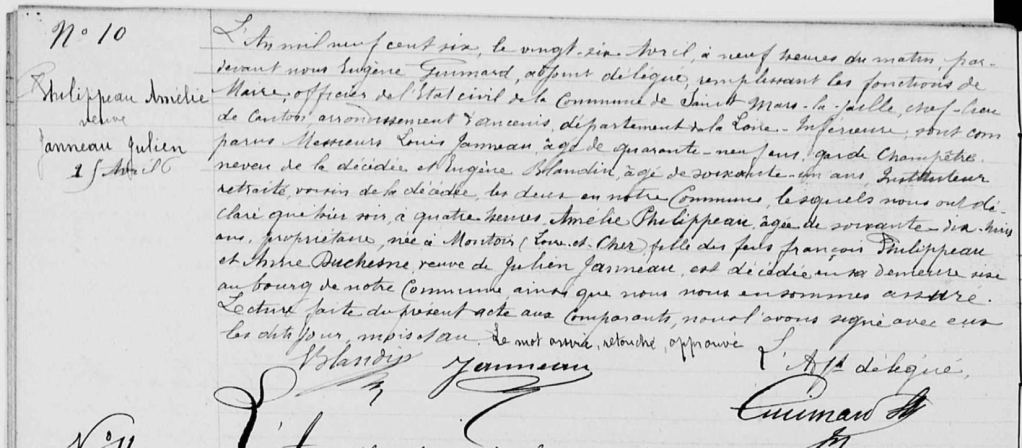 N° 10
Philippeau Amélie
veuve
Janneau Julien
25 Avril
L'An mil neuf cent six, le vingt-six Avril, à neuf heures du matin par-
devant nous Eugène Guimard, adjoint délégué, remplissant les fonctions de
Maire, officier de l'Etat civil de la Commune de Saint Mars-la-Jaille, chef-lieu
de Canton, arrondissement d'Ancenis, département de la Loire-Inférieure, sont com
parus Messieurs Louis Janneau, âgé de quarante-neuf ans, garde Champêtre
neveu de la décédée et Eugène Blandin, âgé de soixante-un ans, Instituteur
retraité, voisin de la décédée, les deux en notre Commune, lesquels nous ont dé-
claré que hier soir, à quatre heures, Amélie Philippeau, âgée de soixante-dix-huit
ans, propriétaire, née à Montoir (Loir-et-Cher) fille des feus françois Philippeau
et Anne Duchesne, veuve de Julien Janneau, est décédée en sa demeure sise
au bourg de notre Commune, ainsi que nous nous en sommes assuré.
Lecture faite du présent acte aux Comparants, nous l'avons signé avec eux
les dits jour, mois et an. Le mot assuré, retouché, approuvé
L'Adj. délégué,
Blandin Janneau
Guimard
N° 11